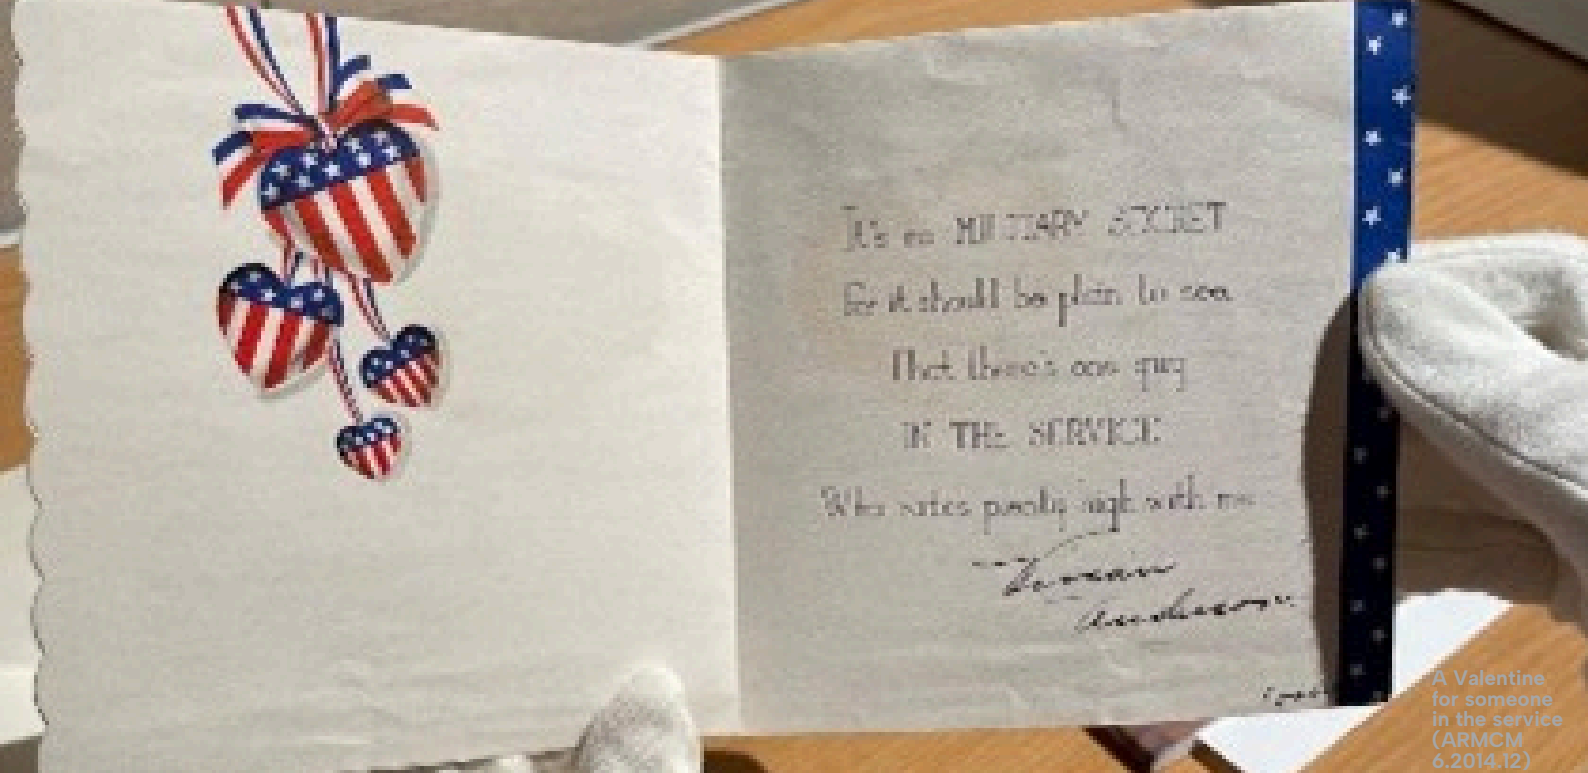 It's no MILITARY SECRET
For it should be plain to see
That there's one guy
IN THE SERVICE
Who rates pretty high with me
A Valentine
for someone
in the service
(ARMCM
6.2014.12)